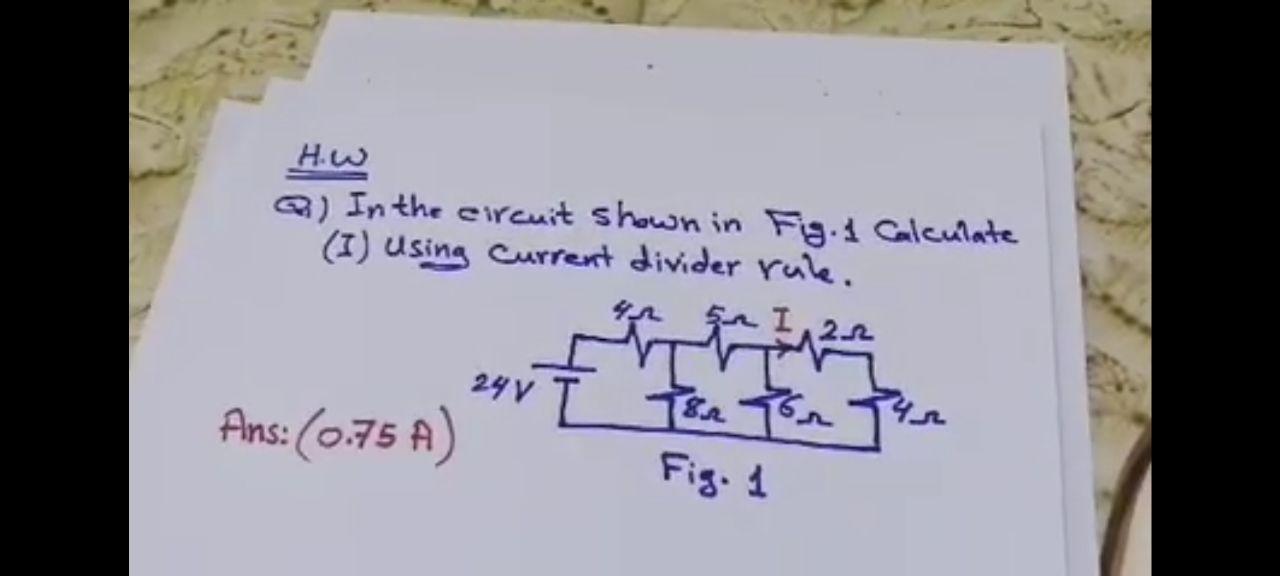 H.W
Q) In the circuit shown in Fig.1 Calculate
(I) using current divider rule.
4Ω 5Ω I 2Ω
24V 8Ω 6Ω 4Ω
Ans: (0.75 A)
Fig. 1